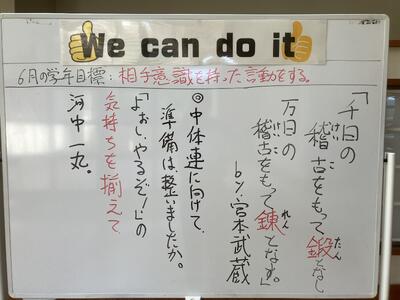 We can do it
6月の学年目標：相手意識を持った言動をする。
「千日の
稽古をもって鍛となし
けいこ
たん
万日の
稽古をもって錬となす。」
けいこ
れん
by.宮本武蔵
◎中体連に向けて、
準備は、整いましたか。
「よぉし、やるぞ！」の
気持ちを揃えて
河中一丸。